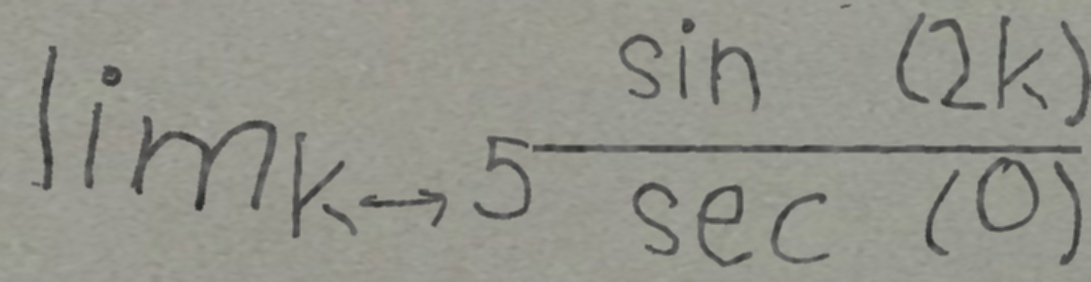 lim k→5 sin (2k)
sec (0)